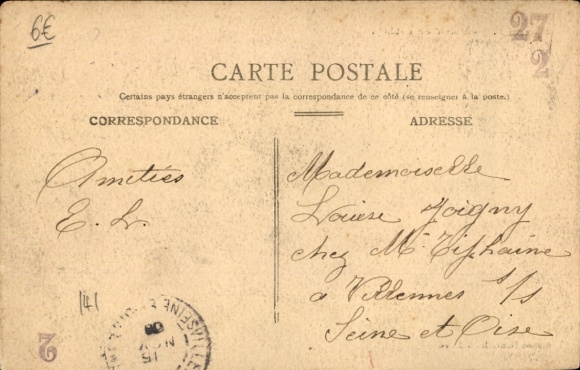 6€
27
2
CARTE POSTALE
Certains pays étrangers n'acceptent pas la correspondance de ce côté (se renseigner à la poste.)
CORRESPONDANCE
ADRESSE
Amitiés
E. L.
Mademoiselle
Louise Joigny
chez Mr Tiphaine
à Villennes s/s
Seine et Oise
141
15
NOV
08
2